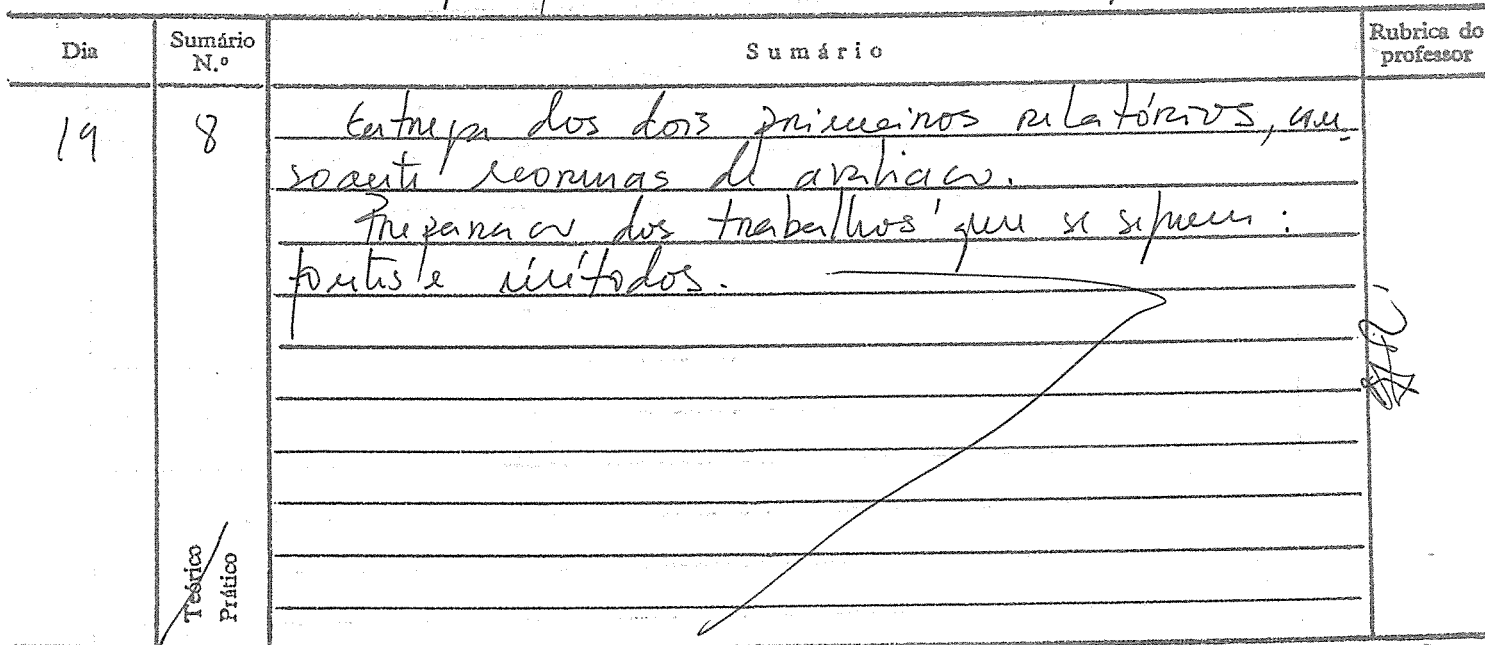 Dia
Sumário N.º
Sumário
Rubrica do professor
19
8
Entrega dos dois primeiros relatórios,
normas de avaliação.
Preparação dos trabalhos que se seguem:
fontes e métodos.
Teórico
Prático